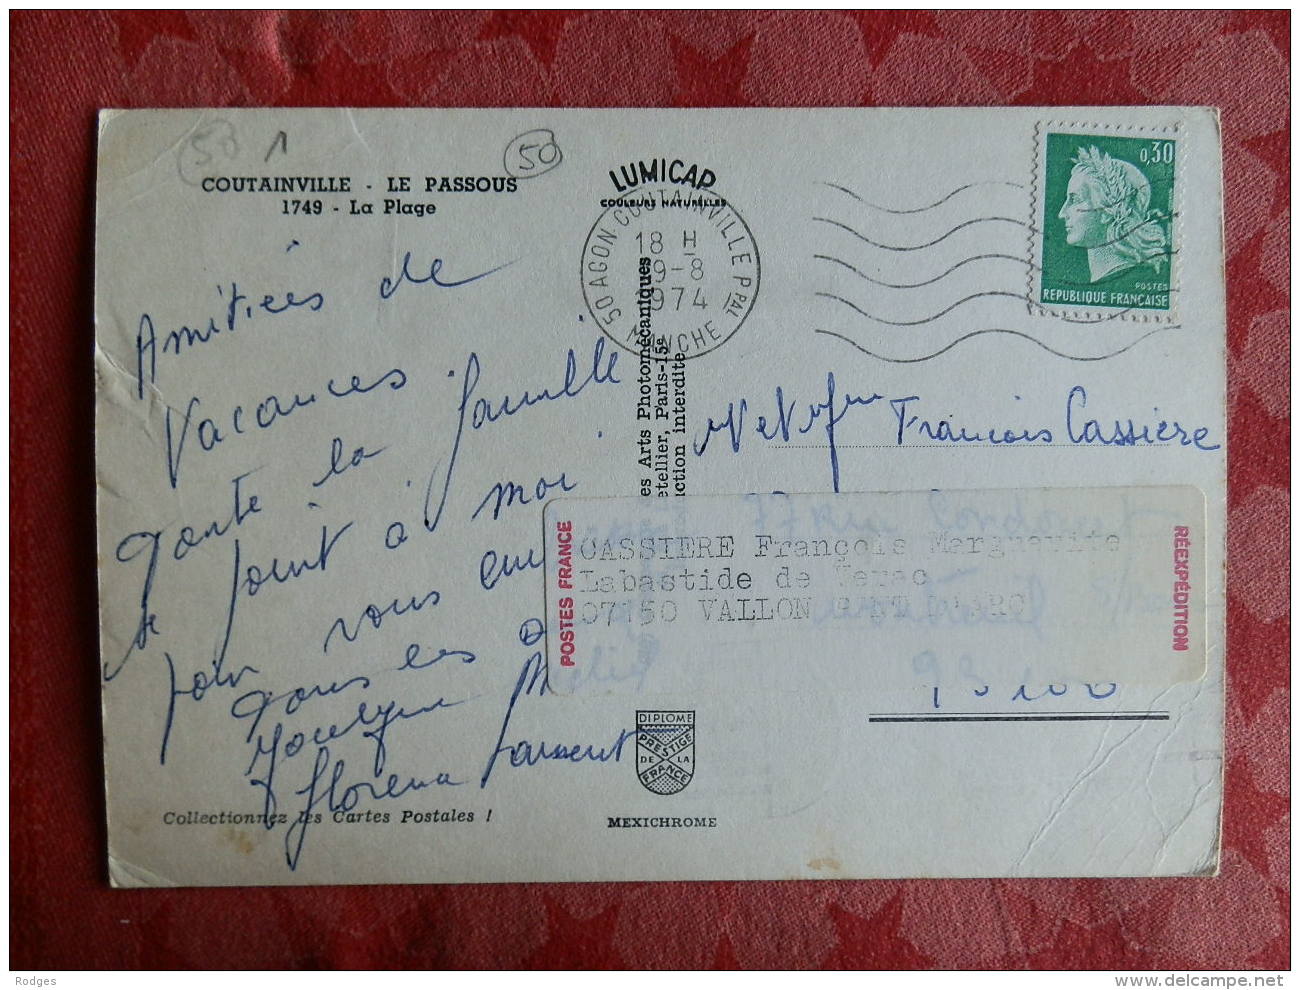 50 1
50
COUTAINVILLE - LE PASSOUS
1749 - La Plage
LUMICAP
COULEURS NATURELLES
50 AGON-COUTAINVILLE PPAL
18 H
9-8
1974
MANCHE
0,30
POSTES
REPUBLIQUE FRANÇAISE
es Arts Photomécaniques
etellier, Paris-15e
uction interdite
Amitiées de
Vacances
Toute la famille
se joint à moi
pour vous
Tous les
Jocelyne
florena Laurent
François Cassière
77 rue Condorcet
93100
POSTES FRANCE
CASSIERE François Marguerite
Labastide de Virac
07150 VALLON PONT D'ARC
RÉEXPÉDITION
DIPLOME
PRESTIGE
DE LA
FRANCE
MEXICHROME
Collectionnez les Cartes Postales !
Rodges
www.delcampe.net